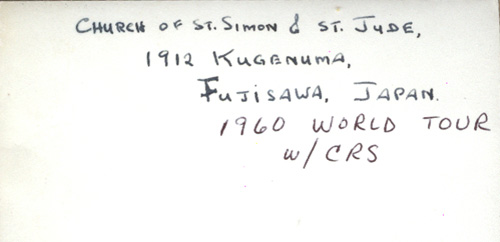 CHURCH OF ST. SIMON & ST. JUDE,
1912 KUGENUMA,
FUJISAWA, JAPAN.
1960 WORLD TOUR
W/ CRS